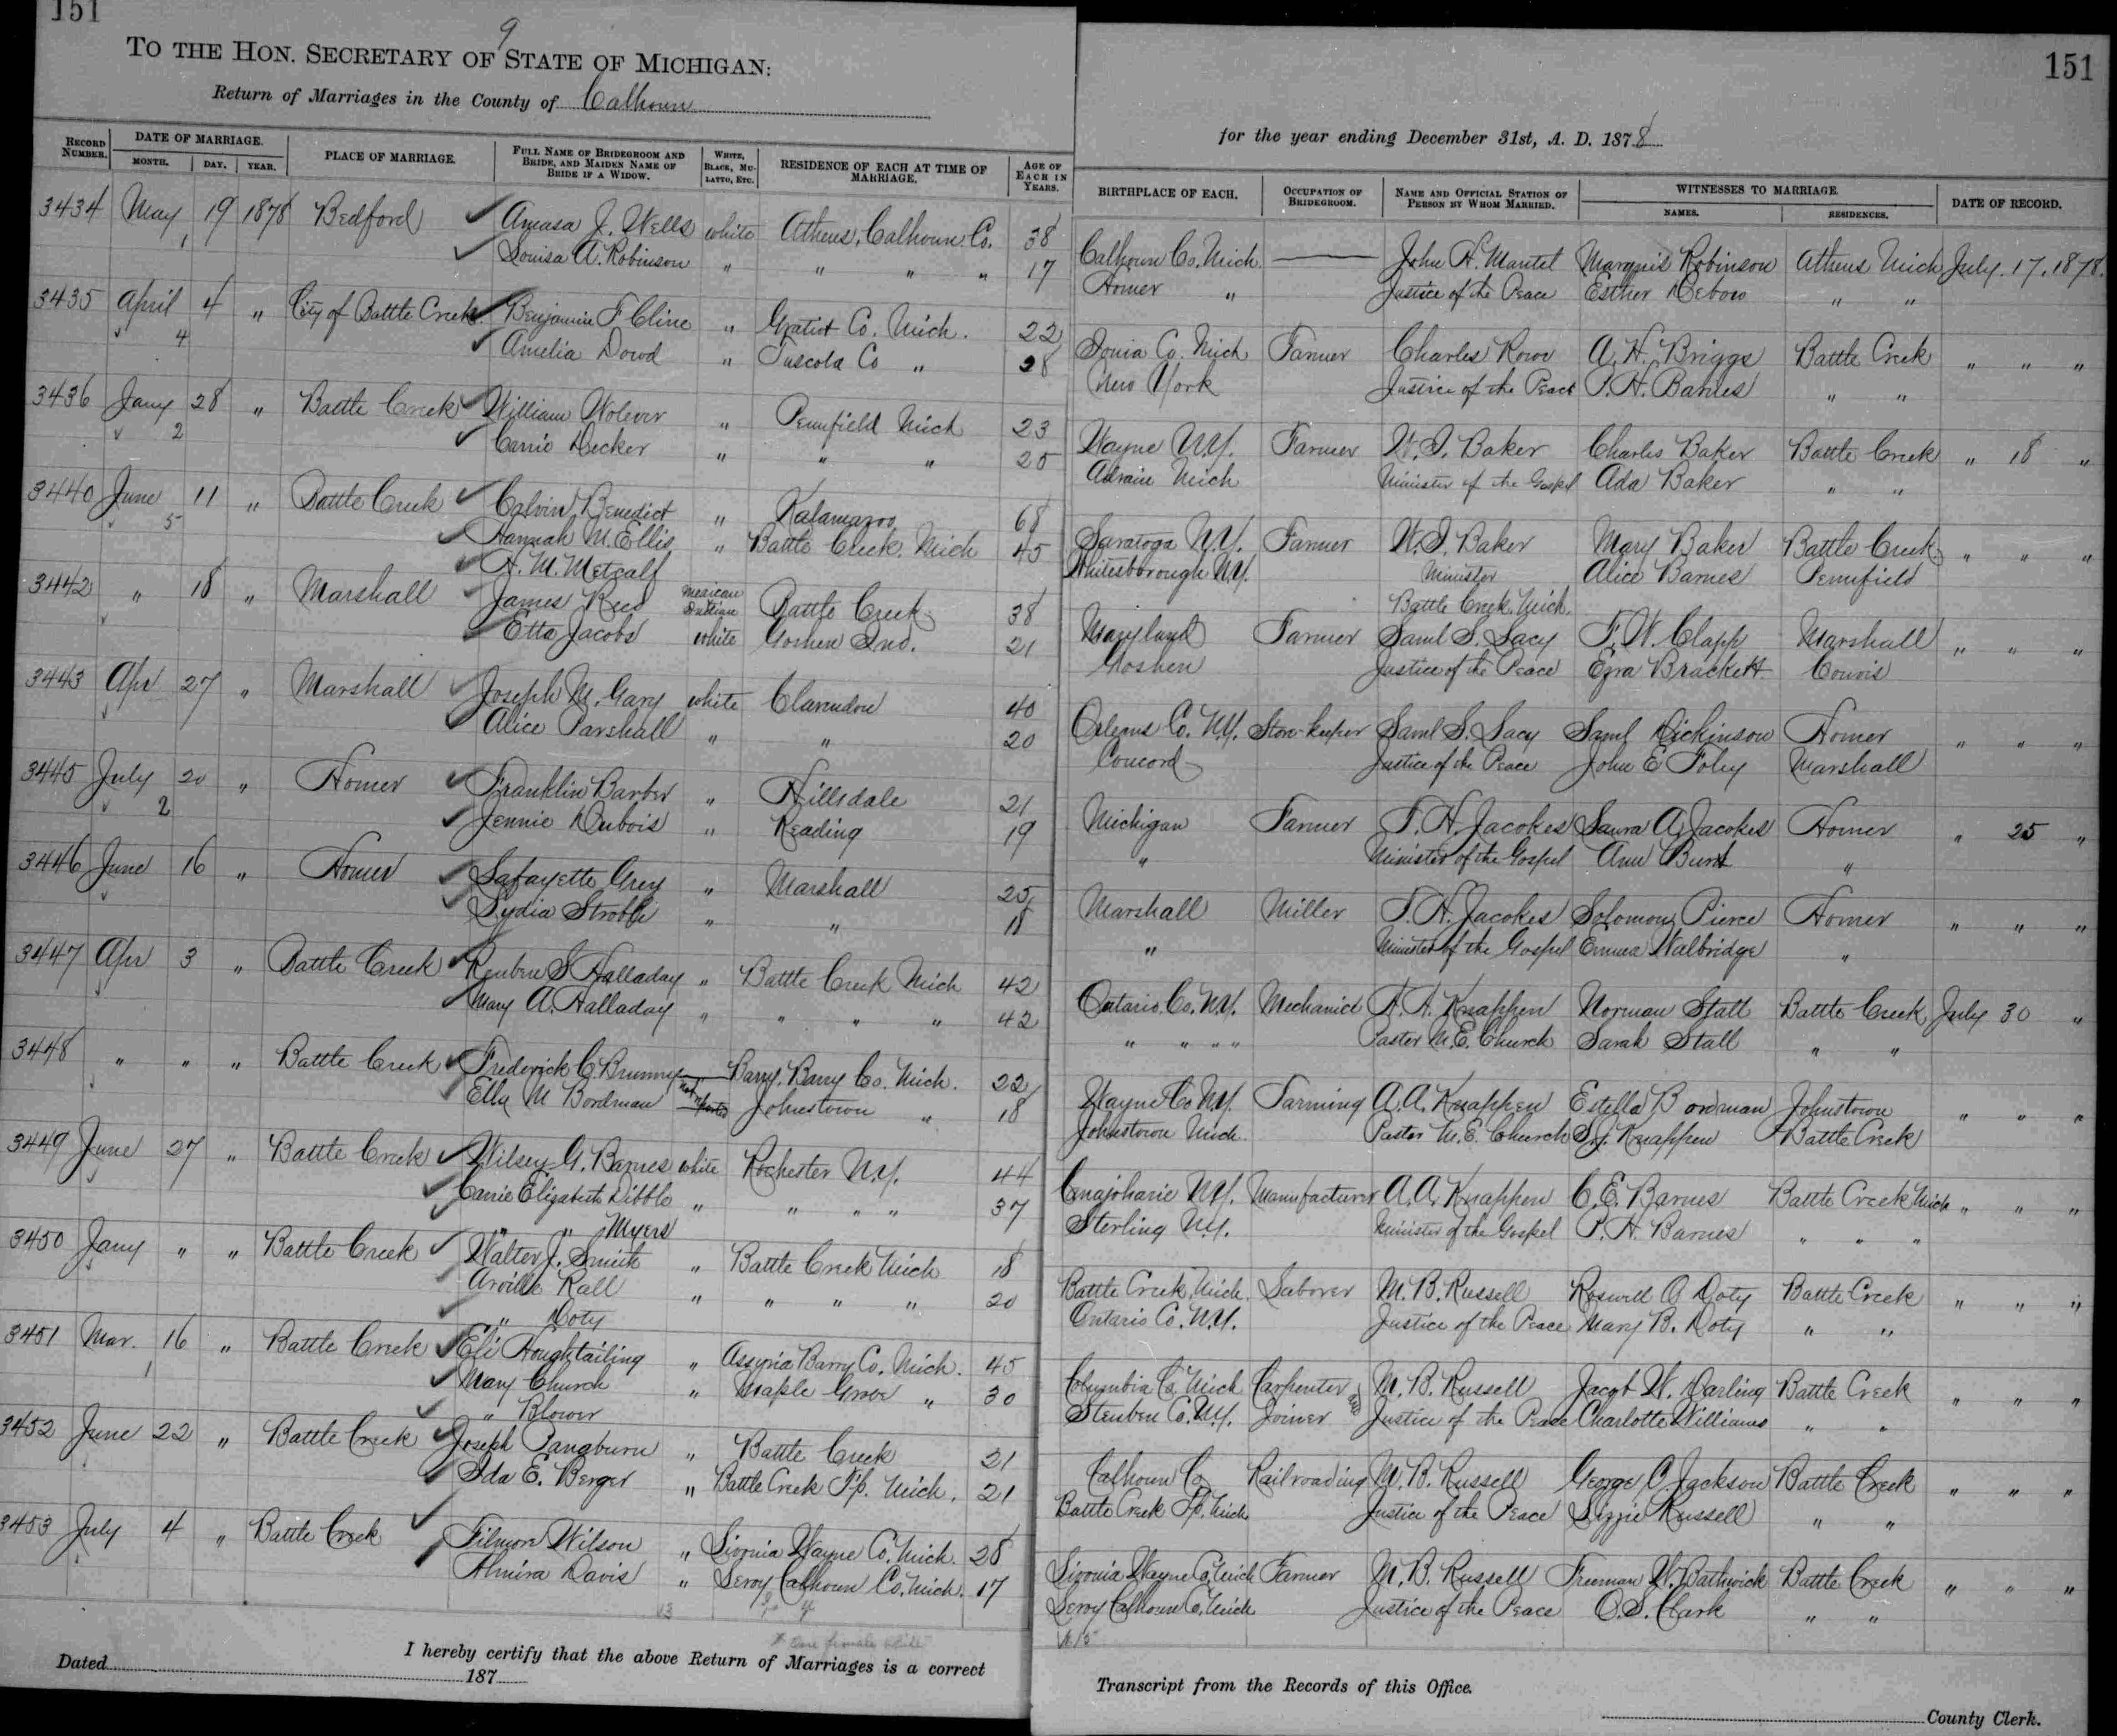 151
9
TO THE HON. SECRETARY OF STATE OF MICHIGAN:
Return of Marriages in the County of Calhoun
RECORD NUMBER. DATE OF MARRIAGE. MONTH. DAY. YEAR. PLACE OF MARRIAGE. FULL NAME OF BRIDEGROOM AND BRIDE, AND MAIDEN NAME OF BRIDE IF A WIDOW. WHITE, BLACK, MULATTO, ETC. RESIDENCE OF EACH AT TIME OF MARRIAGE. AGE OF EACH IN YEARS.
3434 May 19 1878 Bedford Amasa J. Wells white Athens, Calhoun Co. 38
1 Louisa A. Robinson " " " " 17
3435 April 4 " City of Battle Creek Benjamin F Cline " Gratiot Co. Mich. 22
4 Amelia Dowd " Tuscola Co " 28
3436 Jany 28 " Battle Creek William Wolever " Pennfield Mich 23
2 Carrie Decker " " " 25
3440 June 11 " Battle Creek Calvin Benedict " Kalamazoo 68
5 Hannah M. Ellis " Battle Creek Mich 45
H. M. Metcalf
3442 " 18 " Marshall James Reed Mexican Indian Battle Creek 38
Etta Jacobs white Goshen Ind. 21
3443 Apr 27 " Marshall Joseph M. Gary white Clarendon 40
Alice Parshall " " 20
3445 July 20 " Homer Franklin Barber " Hillsdale 21
2 Jennie Dubois " Reading 19
3446 June 16 " Homer Lafayette Grey " Marshall 25
Lydia Stroble " " 18
3447 Apr 3 " Battle Creek Reuben S Halladay " Battle Creek Mich 42
Mary A. Halladay " " " " 42
3448 " " " Battle Creek Frederick C. Brunny Barry, Barry Co. Mich. 22
Ella M Bordman not reported Johnstown " 18
3449 June 27 " Battle Creek Wilsey G. Barnes white Rochester N.Y. 44
Carrie Elizabeth Dibble " " " " 37
" " Myers
3450 Jany " " Battle Creek Walter J. Smith " Battle Creek Mich 18
Arville Kall " " " " 20
" Doty
3451 Mar. 16 " Battle Creek Eli Houghtailing " Assyria Barry Co. Mich. 45
1 Mary Church " Maple Grove " 30
" Blower
3452 June 22 " Battle Creek Joseph Pangburn " Battle Creek 21
Ida E. Berger " Battle Creek Tp. Mich. 21
3453 July 4 " Battle Creek Filmore Wilson " Livonia Wayne Co. Mich. 28
Almira Davis " Leroy Calhoun Co. Mich. 17
I hereby certify that the above Return of Marriages is a correct
Dated 187
151
for the year ending December 31st, A. D. 1878
BIRTHPLACE OF EACH. OCCUPATION OF BRIDEGROOM. NAME AND OFFICIAL STATION OF PERSON BY WHOM MARRIED. WITNESSES TO MARRIAGE. NAMES. RESIDENCES. DATE OF RECORD.
Calhoun Co. Mich. John H. Mantel Marquis Robinson Athens Mich July. 17. 1878.
Homer " Justice of the Peace Esther Debow " "
Ionia Co. Mich Farmer Charles Rowe A. H. Briggs Battle Creek " " "
New York Justice of the Peace P. H. Barnes " "
Wayne N.Y. Farmer W. I. Baker Charles Baker Battle Creek " 18 "
Adrain Mich Minister of the Gospel Ada Baker " "
Saratoga N.Y. Farmer W. I. Baker Mary Baker Battle Creek " " "
Whitesborough N.Y. Minister Alice Barnes Pennfield
Battle Creek, Mich.
Maryland Farmer Saml S. Lacy F. W. Clapp Marshall " " "
Goshen Justice of the Peace Ezra Brackett Convis
Orleans Co. N.Y. Store-keeper Saml S. Lacy Saml Dickinson Homer " " "
Concord Justice of the Peace John E Foley Marshall
Michigan Farmer T. H. Jacokes Laura A. Jacokes Homer " 25 "
" Minister of the Gospel Ann Burt "
Marshall Miller T. H. Jacokes Solomon Pierce Homer " " "
" Minister of the Gospel Emma Walbridge "
Ontario Co. N.Y. Mechanic A. A. Knappen Norman Stall Battle Creek July 30 "
" " " " Pastor M.E. Church Sarah Stall " "
Wayne Co N.Y. Farming A. A. Knappen Estella Bordman Johnstown " " "
Johnstown Mich. Pastor M.E. Church S. J. Knappen Battle Creek
Canajoharie N.Y. Manufacturer A. A. Knappen C. E. Barnes Battle Creek Mich " " "
Sterling N.Y. Minister of the Gospel P. H. Barnes " " "
Battle Creek Mich. Laborer M. B. Russell Roswell A Doty Battle Creek " " "
Ontario Co. N.Y. Justice of the Peace Mary B. Doty " "
Columbia Co. Mich Carpenter and M. B. Russell Jacob W. Darling Battle Creek " " "
Steuben Co. N.Y. Joiner Justice of the Peace Charlotte Williams " "
Calhoun Co Railroading M. B. Russell George O Jackson Battle Creek " " "
Battle Creek Tp. Mich Justice of the Peace Lizzie Russell " "
Livonia Wayne Co. Mich Farmer M. B. Russell Freeman W. Bathwick Battle Creek " " "
Leroy Calhoun Co. Mich Justice of the Peace O. S. Clark " "
Transcript from the Records of this Office.
County Clerk.